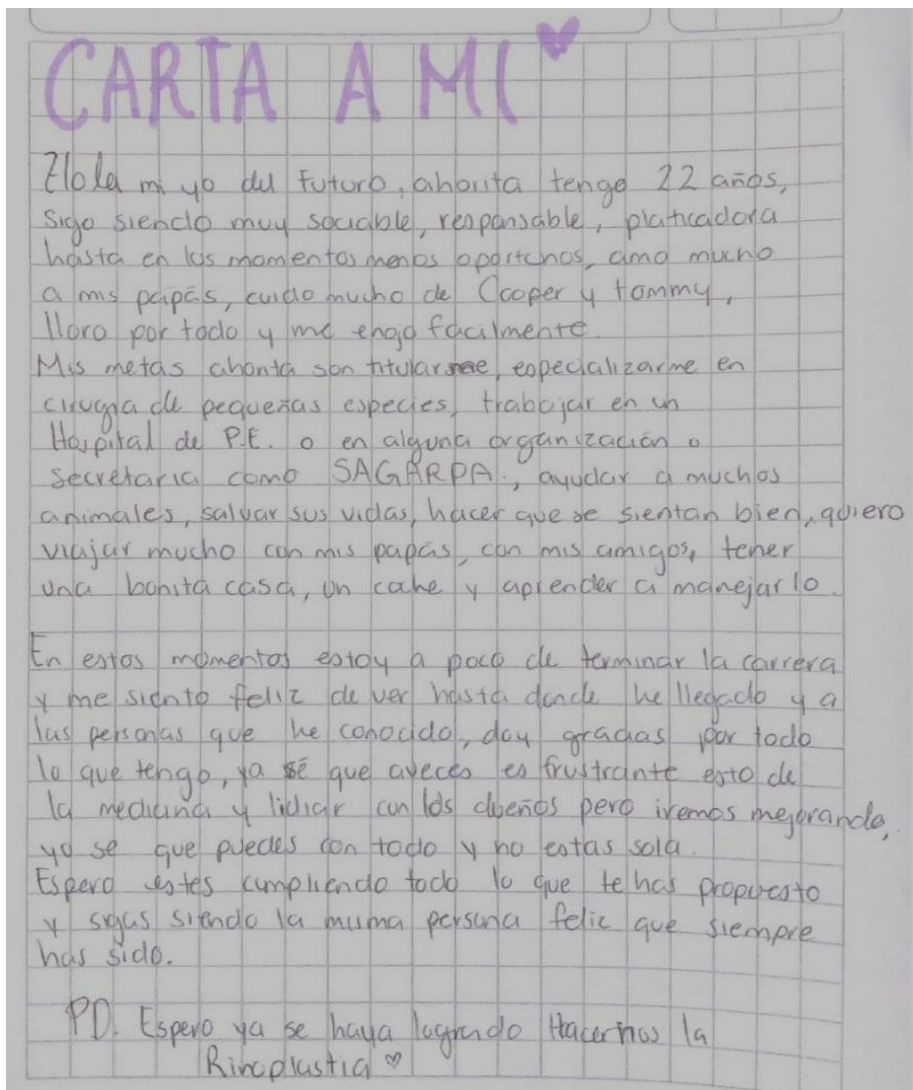 CARTA A MI
Hola mi yo del Futuro, ahorita tengo 22 años,
sigo siendo muy sociable, responsable, platicadora
hasta en los momentos menos oportunos, amo mucho
a mis papás, cuido mucho de Cooper y tommy,
lloro por todo y me enojo facilmente.
Mis metas ahorita son titularme, especializarme en
cirugia de pequeñas especies, trabajar en un
Hospital de P.E. o en alguna organización o
secretaria como SAGARPA., ayudar a muchos
animales, salvar sus vidas, hacer que se sientan bien, quiero
viajar mucho con mis papás, con mis amigos, tener
una bonita casa, un coche y aprender a manejarlo.
En estos momentos estoy a poco de terminar la carrera
y me siento feliz de ver hasta donde he llegado y a
las personas que he conocido, doy gracias por todo
lo que tengo, ya sé que aveces es frustrante esto de
la medicina y lidiar con los dueños pero iremos mejorando,
yo se que puedes con todo y no estas sola.
Espero estes cumpliendo todo lo que te has propuesto
y sigas siendo la misma persona feliz que siempre
has sido.
PD. Espero ya se haya logrado Hacernos la
Rinoplastia